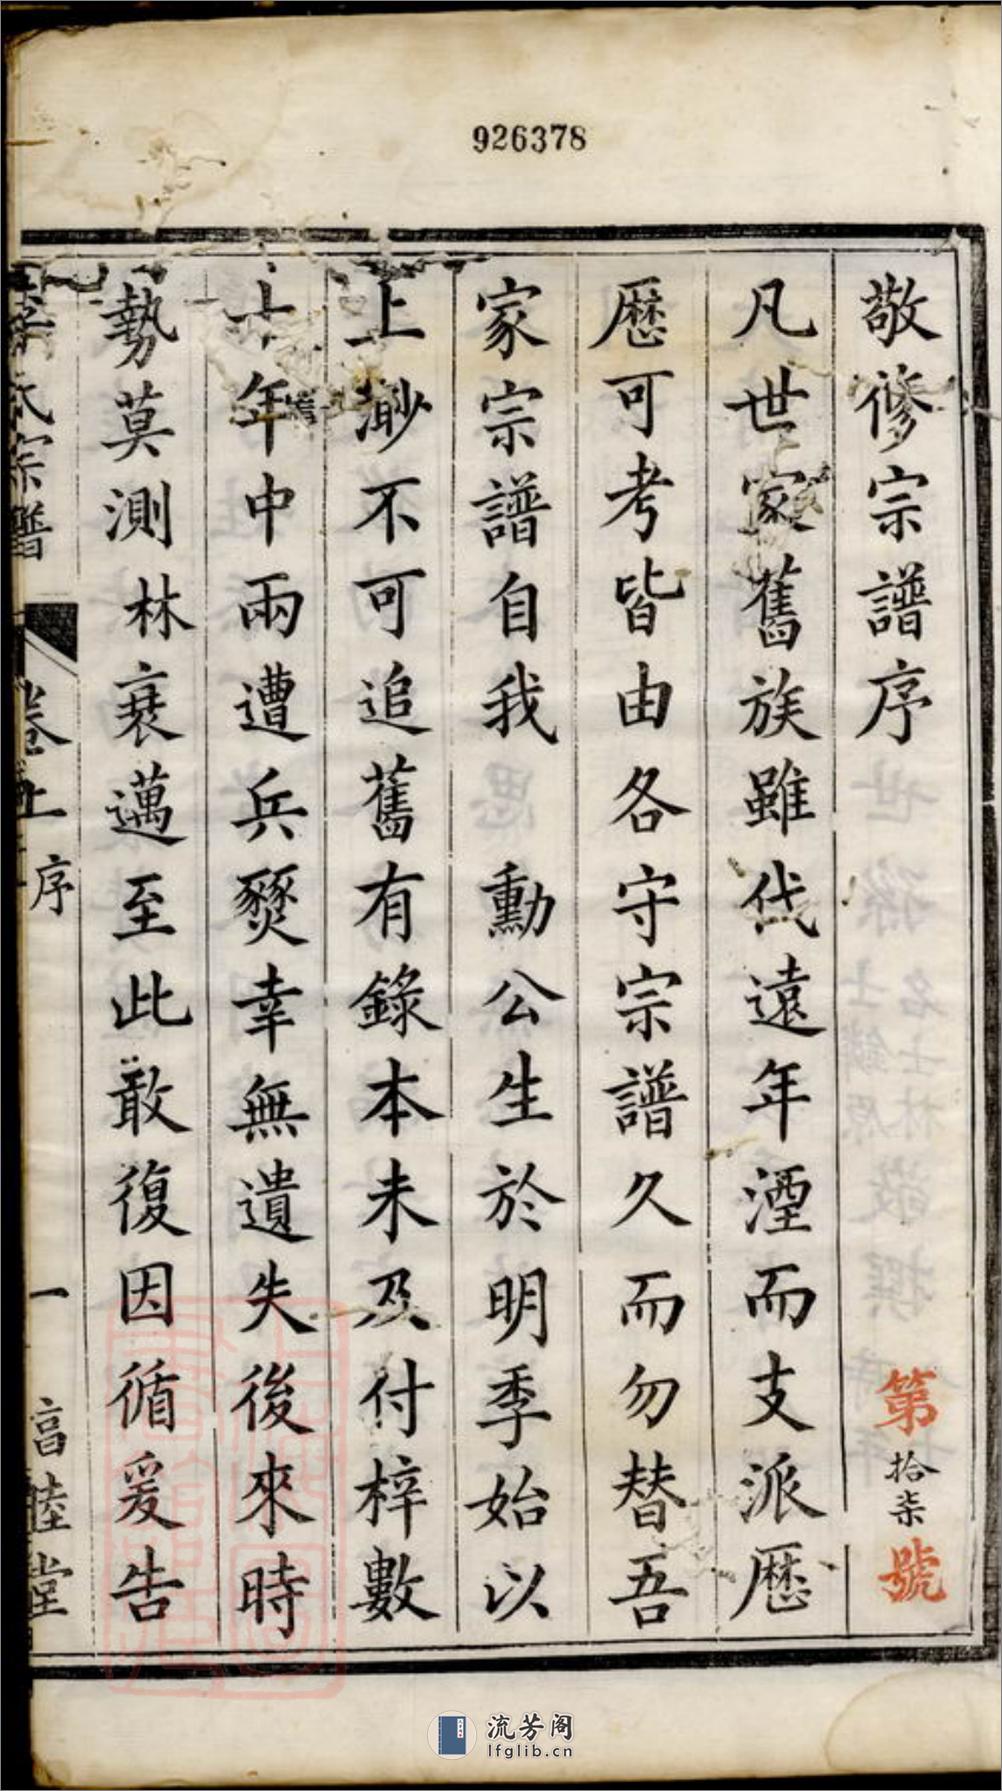 926378
敬修宗譜序
第拾柒號
凡世家舊族雖代遠年湮而支派歷
歷可考皆由各守宗譜久而勿替吾
家宗譜自我 勳公生於明季始以
上渺不可追舊有錄本未及付梓數
十年中兩遭兵燹幸無遺失後來時
勢莫測林衰邁至此敢復因循爰告
氏宗譜
卷上 序
一
睦堂
流芳阁
lfglib.cn